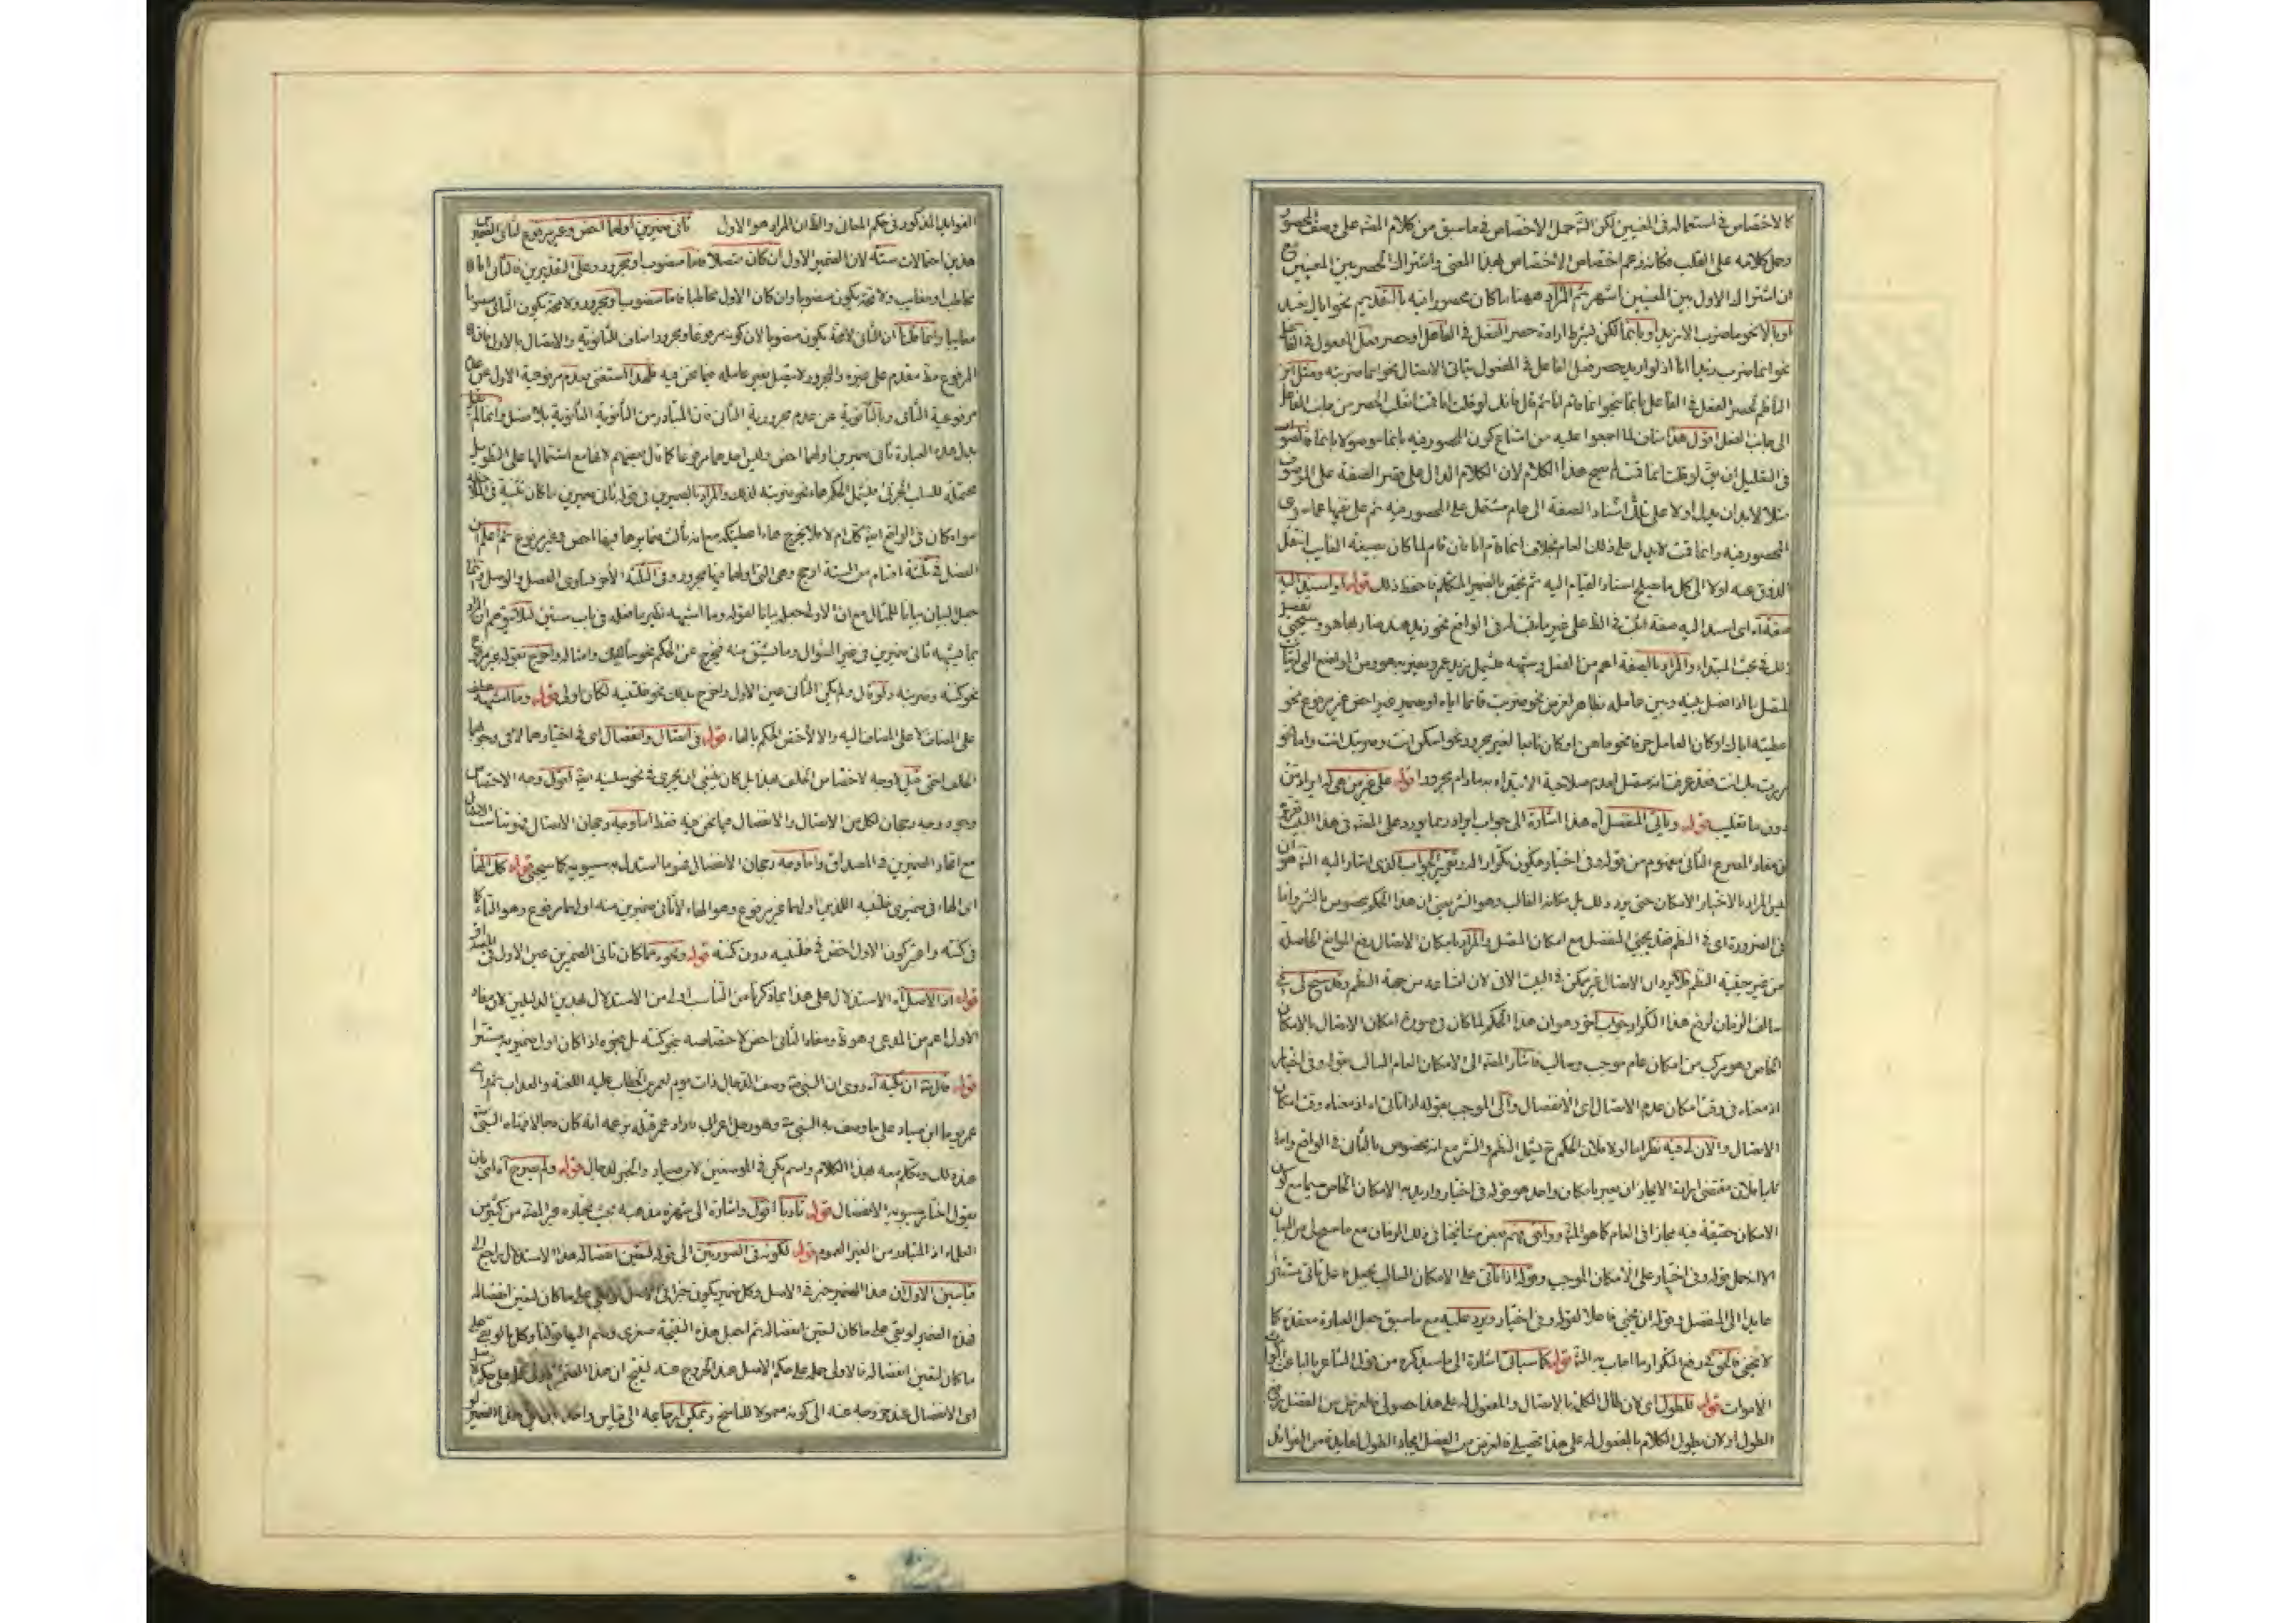 كالاختصاص في استعماله في المعنيين لكن الشه حمل الاختصاص في ما سبق من كلام المصه على وصف المحصور
وحمل كلامه على القلب فكانه زعم اختصاص الاختصاص بهذا المعنى واشتراك الحصر بين المعنيين مع
ان اشتراك الاول بين المعنيين اشهر ثم المراد ههنا ما كان محصورا فيه بالتقديم نحو اياك نعبد
او بالا نحو ما ضرب الا زيد او بانما لكن بشرط ارادة حصر الفعل في الفاعل او حصر فعل المفعول في الفاعل
نحو انما ضرب زيدا انا اذ لو اريد حصر فعل الفاعل في المفعول يتاتى الاتصال نحو انما ضربته ومثل ابن
الناظم لحصر الفعل في الفاعل بانما بنحو انما قام انا ثم قال فانك لو قلت انما قمت انقلب الحصر من جانب الفاعل
الى جانب الفعل اقول هذا مناف لما اجمعوا عليه من امتناع كون المحصور فيه بانما موصولا بانما فالصواب
في التعليل ان يق لو قلت انما قمت لم يصح هذا الكلام لان الكلام الدال على قصر الصفة على الموصوف
مثلا لا بد ان يدل اولا على اسناد الصفة الى عام مشتمل على المحصور فيه ثم على نفيها عما سوى
المحصور فيه وانما قمت لا يدل على ذلك العام بخلاف انما قام انا فان قام لما كان بصيغة الغايب انتقل
الذوق عنه اولا الى كل ما يصلح اسناد القيام اليه ثم يخص بالضمير المتكلم فاحفظ ذلك قوله او اسند اليه
صفة اه اى اسند اليه صفة اثبت في الظ على غير ما ثبت له في الواقع نحو زيد هند ضاربها هو وسيجئ تفصيل
ذلك في بحث المبتداء والمراد بالصفة اعم من الفعل وشبهه فيشمل زيد عمرو يضربه هو ومن مواضع
المنفصل ما اذا فصل بينه وبين عامله بظاهر
عطيته اياك او كان العامل حرفا نحو ما هن او كان تابعا لغير مجرور نحو اسكن انت وضربتك انت واما نحو
مررت بك انت فقد عرفت انه منفصل لعدم صلاحية الابتداء به ما دام مجرورا قوله على غير من هي له ايراد من
دون ما تغليب قوله وتاتى المتصل اه هذا اشارة الى جواب ايراد ربما يورد على المصه في هذا البيت
ن مفاد المصرع الثانى مفهوم من قوله وفى اختيار فيكون تكرارا الجواب الذى اشار اليه الشه هو ان
ليس المراد بالاختيار الامكان حتى يرد ذلك بل مكانه الغالب وهو النثر يعنى ان هذا الحكم مخصوص بالنثر واما
في الضرورة اى في النظم فقد يجئ المنفصل مع امكان المتصل والمراد بامكان الاتصال رفع الموانع الحاصلة
من غير حيثية النظم فلا يرد ان الاتصال غير ممكن في البيت الاتى لان امتناعه من جهة النظم وقد سنح لى في
سالف الزمان لرفع هذا التكرار جواب اخر وهو ان هذا الحكم لما كان في صورة امكان الاتصال بالامكان
الخاص وهو مركب من امكان عام موجب وسالب فاشار المصه الى الامكان العام السالب بقوله وفى اختيار
اذ معناه في وقت امكان عدم الاتصال اى الانفصال والى الموجب بقوله اذا تاتى اه اذ معناه وقت امكان
الاتصال والان لى فيه نظر اما اولا فلان الحكم ح يشمل النظم والنثر مع انه مخصوص بالثانى في الواقع واما
ثانيا فلان مقتضى ارادة الايجاز ان يعبر بامكان واحد هو قوله في اختيار واريد به الامكان الخاص سيما مع كون
الامكان حقيقة فيه مجازا في العام كما هو الحق ووافقنى بعض مشايخنا في ذلك الزمان مع ما سنح لى من البيان
الا انه حمل قوله وفى اختيار على الامكان الموجب وقوله اذا تاتى على الامكان السالب بجعل فاعل تاتى مستتر
عايدا الى المنفصل وقوله ان يجئ فاعلا لقوله وفى اختيار ويرد عليه مع ما سبق جعل العبارة معقدة كما
لا يخفى فالحق في رفع التكرار ما اجاب به الشه قوله كما سياتى اشارة الى ما سيذكره من قول الشاعر بالباعث الوارث
الاموات قوله لطول اى لان طال الكلام بالاتصال والمفعول له على هذا حصولى فالغرض من الفصل
الطول او لان يطول الكلام فالمفعول له على هذا تحصيلى فالغرض من الفصل ايجاد الطول لفايدة من الفوايد
الفوايد المذكورة في حكم المعانى والظ ان المراد هو الاول ثانى ضميرين اولهما اخص وغير مرفوع الثانى
هذين احتمالات ستة لان الضمير الاول ان كان متصلا فاما منصوب او مجرور وعلى التقديرين فالثانى اما
مخاطب او مغايب ولا محة يكون منصوبا وان كان الاول مخاطبا فاما منصوب او مجرور ولا محة يكون الثانى
مغايبا وانما قلنا ان الثانى لا محة يكون منصوبا لان كونه مرفوعا ومجرورا مناف للثانوية والاتصال بالاول فان
المرفوع متقدم على غيره والمجرور لا يتصل بغير عامله فيما نحن فيه فلهذا استغنى بعدم مرفوعية الاول عن
مرفوعية الثانى وبالثانوية عن عدم مجرورية الثانى فان المتبادر من الثانوية الثانوية بلا فصل وانما لم يقل
بدل هذه العبارة ثانى ضميرين اولهما اخص وليس احدهما مرفوعا كما قال بعضهم لانها مع اشتمالها على التطويل
محتملة للسلب الجزئى فيشمل الحكم جاء نحو ضربته لذلك والمراد بالضميرين في قوله ثانى ضميرين ما كان
سواء كان في الواقع ايضا كك ام لا فلا يخرج جاء اعطيتكه مع انه ثالث ضمايرها فيها اخص وغير مرفوع ثم اعلم ان
الفصل في ثلثة اقسام من الستة ارجح وهى التى اولها فيها مجرور وفى الثلثة الاخر تساوى الفصل والوصل
جعل البيان بيانا للمثال مع ان الاولى جعله بيانا لقوله وما اشبهه نظير ما فعله في باب سنين لئلا يتوهم ان المراد
بما يشبهه ثانى ضميرين في غير السؤال وما يشتق منه فيخرج عن الحكم نحو وامثاله واخرج بقوله غير مرفوع
نحو كنته وضربته ولو قال ولم يكن الثانى عين الاول واخرج بذلك نحو خلتنيه لكان اولى قوله وما اشبهه عطف
على المضاف لا على المضاف اليه والا لاختص الحكم بالهاء قوله في اتصال وانفصال اى في اختيارهما لا في وجوبهما
الخلف اختى قيل لا وجه لاختصاص الخلف بهذا بل كان ينبغى ان يجرى في نحو سلنيه ايضا اقول وجه الاختصاص
وجود وجه رجحان لكل من الاتصال والانفصال فيما نحن فيه فقط اما وجه رجحان الاتصال فهو
مع اتحاد الضميرين في المصداق واما وجه رجحان الانفصال فهو ما استدل به سيبويه كما سيجئ قوله كل الهاء
اى الهاء في ضميرى خلتنيه اللذين اولهما غير مرفوع وهو الهاء لا ثانى ضميرين منه اولهما مرفوع وهو التاء كما
في كنته واعتبر كون الاول اخص في خلتنيه دون كنته قوله ونحوه مما كان ثانى الضميرين عين الاول في المصداق
قوله اذ الاصل اه الاستدلال على هذا بما ذكرنا من التناسب اولى من الاستدلال بهذين الدليلين لان مفاد
الاول اعم من المدعى وهو ظ ومفاد الثانى اخص لاختصاصه بنحو كنته بل بنحوه اذا كان اول ضميريه مستترا
قوله قال ص ان يكنه اه روى ان النبى ص وصف الدجال ذات يوم لعمر بن الخطاب عليه اللعنة والعذاب ثم راى
عمر يوما ابن صياد على ما وصف به النبى ص وهو رجل اعرابى فاراد عمر قتله بزعمه انه كان دجالا فنهاه النبى ص
عن ذلك وتكلم معه بهذا الكلام واسم يكن في الموضعين لابن صياد والخبر للدجال قوله ولم يصرح اه اى بان
يقول اختار سيبويه الانفصال قوله تادبا اقول واشارة الى شهرة مذهبه بحيث يختاره غير المصه من كثير من
العلماء اذ المتبادر من الغير العموم قوله لكونه في الصورتين الى قوله لتعين انفصاله هذا الاستدلال راجع الى
قياسين الاول ان هذا الضمير خبر في الاصل وكل ضمير يكون خبرا في الاصل لو بقى على ما كان لتعين انفصاله
فهذا الضمير لو بقى على ما كان لتعين انفصاله ثم اجعل هذه النتيجة صغرى وضم اليها قولنا وكل ما لو بقى على
ما كان لتعين انفصاله فالاولى حمله على حكم الاصل عند الخروج عنه لينتج ان هذا الضمير
اى الانفصال عند خروجه عنه الى كونه معمولا للناسخ ويمكن ارجاعه الى قياس واحد